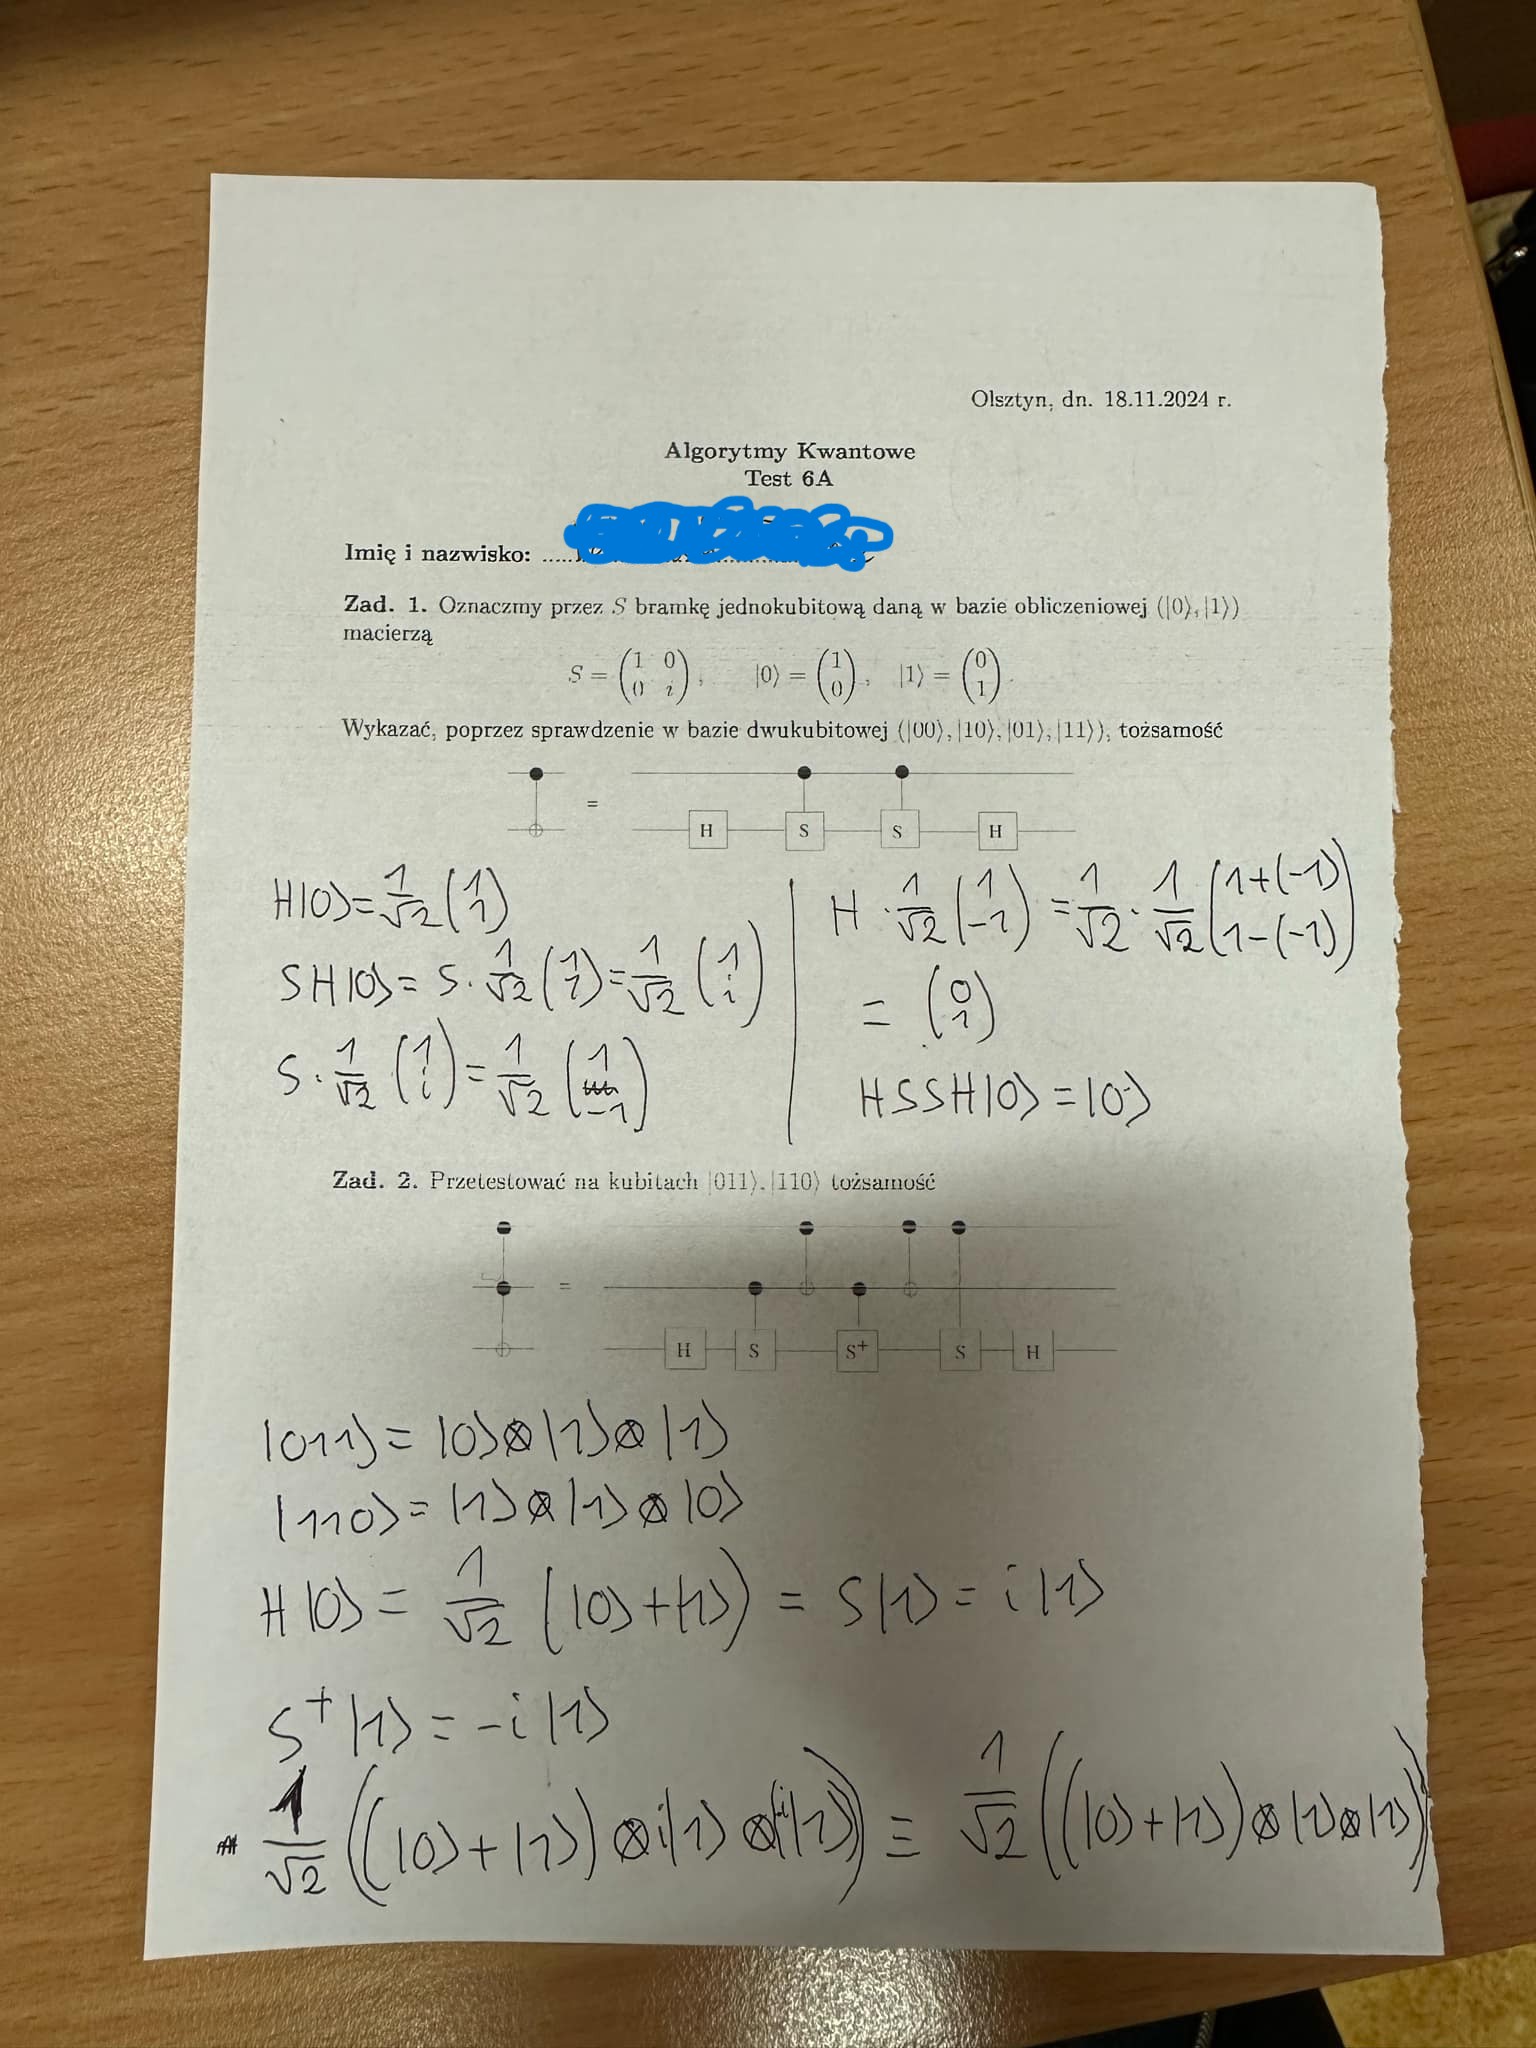 Olsztyn, dn. 18.11.2024 r.
Algorytmy Kwantowe
Test 6A
Imię i nazwisko:
Zad. 1. Oznaczmy przez S bramkę jednokubitową daną w bazie obliczeniowej (|0⟩, |1⟩)
macierzą
S = (1 0 0 i), |0⟩ = (1 0), |1⟩ = (0 1).
Wykazać, poprzez sprawdzenie w bazie dwukubitowej (|00⟩, |10⟩, |01⟩, |11⟩), tożsamość
=
H S S H
H|0⟩ = 1/√2 (1 1)
SH|0⟩ = S · 1/√2 (1 1) = 1/√2 (1 i)
S · 1/√2 (1 i) = 1/√2 (1 -1)
H · 1/√2 (1 -1) = 1/√2 · 1/√2 (1+(-1) 1-(-1))
= (0 1)
HSSH|0⟩ = |0⟩
Zad. 2. Przetestować na kubitach |011⟩, |110⟩ tożsamość
=
H S S+ S H
|011⟩ = |0⟩⊗|1⟩⊗|1⟩
|110⟩ = |1⟩⊗|1⟩⊗|0⟩
H|0⟩ = 1/√2 (|0⟩+|1⟩) = S|1⟩ = i|1⟩
S+|1⟩ = -i|1⟩
1/√2 ((|0⟩+|1⟩)⊗i|1⟩⊗(-i|1⟩)) = 1/√2 ((|0⟩+|1⟩)⊗|1⟩⊗|1⟩)